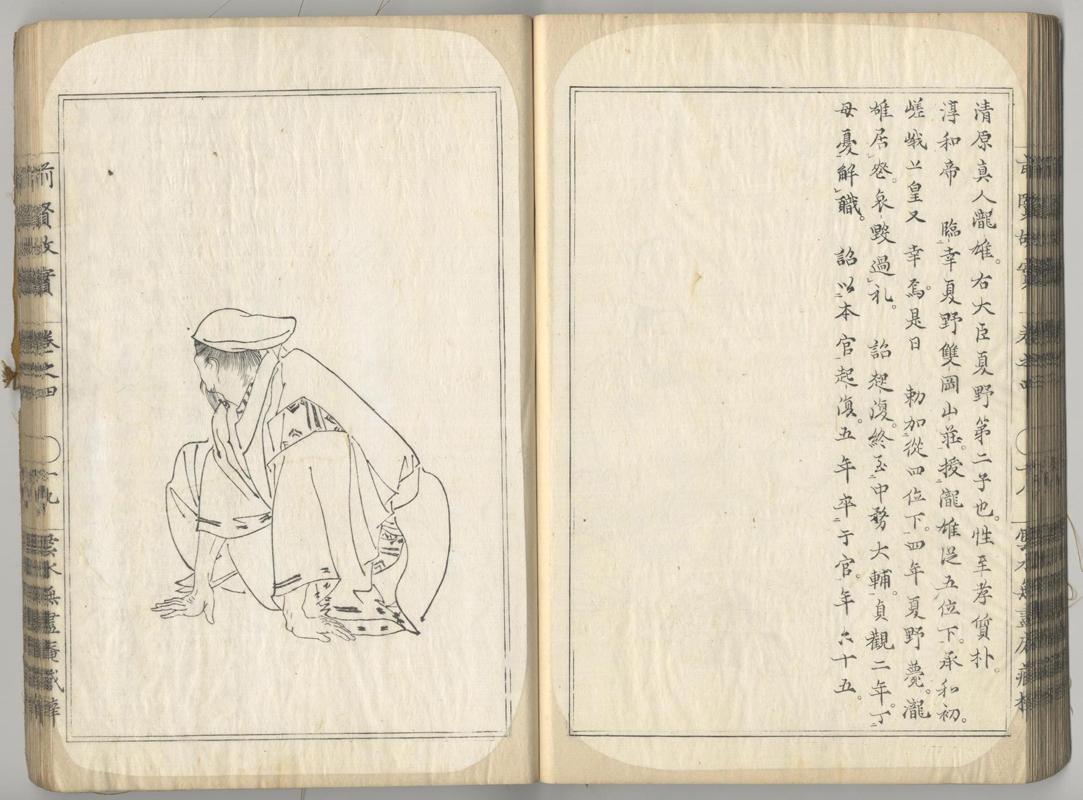 清原真人瀧雄。右大臣夏野第二子也。性至孝質朴。
淳和帝　臨幸夏野雙岡山莊。授瀧雄從五位下。承和初。
嵯峨上皇又　幸焉。是日　勅加從四位下。四年夏野薨。瀧
雄居喪哀毀過礼。　詔起復。終至中務大輔。貞觀二年。丁
母憂解職。　詔以本官起復。五年卒于官。年六十五。
前賢故實　卷之四　〇十九　雲水無盡庵藏